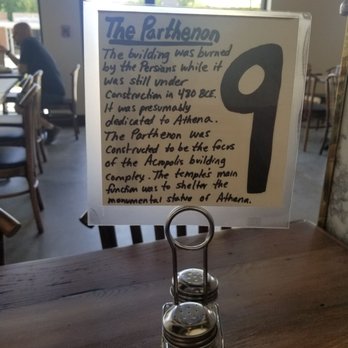 The Parthenon
The building was burned
by the Persians while it
was still under
construction in 480 BCE.
It was presumably
dedicated to Athena.
The Parthenon was
constructed to be the focus
of the Acropolis building
complex. The temple's main
function was to shelter the
monumental statue of Athena.
9